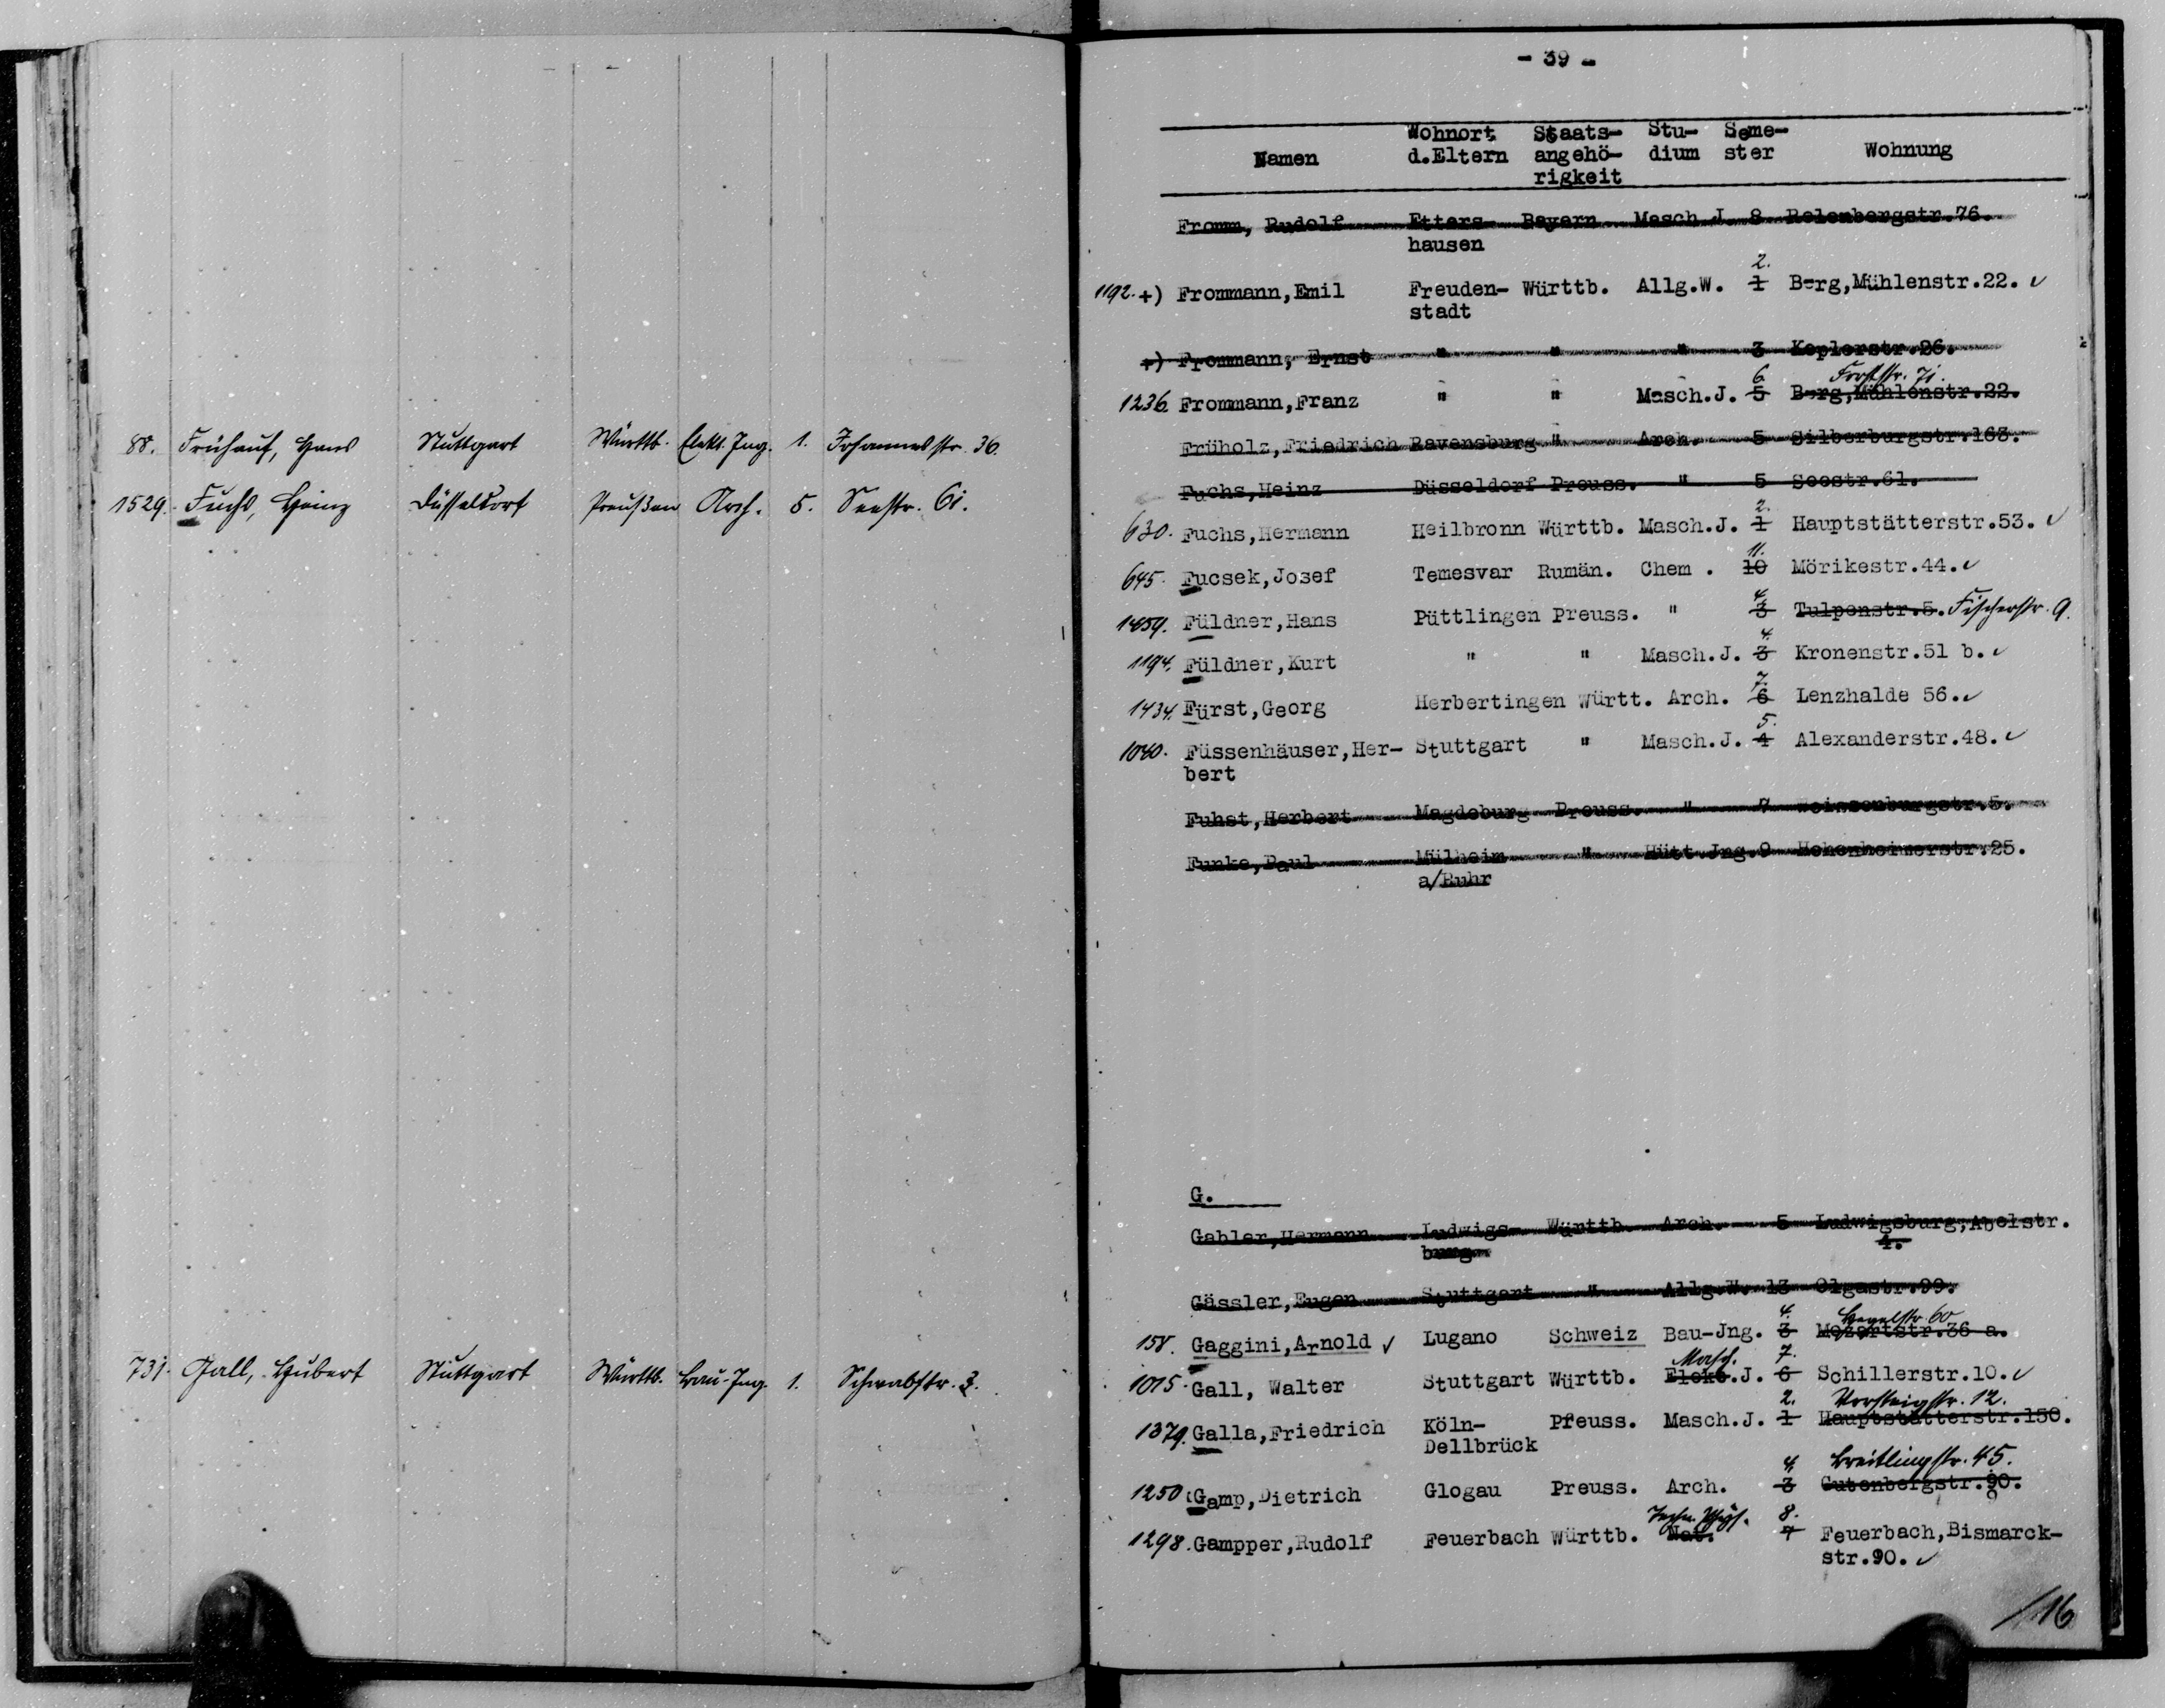 88. Frühauf, Hans Stuttgart Württb. Elekt. Ing. 1. Johannesstr. 36.
1529. Fuchs, Heinz Düsseldorf Preußen Arch. 5. Seestr. 61.
731. Gall, Hubert Stuttgart Württb. Bau-Ing. 1. Schwabstr. 3.
- 39 -
Namen Wohnort d.Eltern Staats-angehö-rigkeit Stu-dium Seme-ster Wohnung
Fromm, Rudolf Etters- Bayern Masch.J. 8 Relenbergstr.76.
hausen
2.
1192. +) Frommann,Emil Freuden- Württb. Allg.W. 1 Berg,Mühlenstr.22. ✓
stadt
+) Frommann, Ernst " " " 3 Keplerstr.26.
6. Forststr. 71.
1236. Frommann,Franz " " Masch.J. 5 Berg,Mühlenstr.22.
Früholz,Friedrich Ravensburg " Arch. 5 Silberburgstr.163.
Fuchs,Heinz Düsseldorf Preuss. " 5 Seestr.61.
2.
630. Fuchs,Hermann Heilbronn Württb. Masch.J. 1 Hauptstätterstr.53. ✓
11.
645. Fucsek,Josef Temesvar Rumän. Chem . 10 Mörikestr.44. ✓
4.
1459. Füldner,Hans Püttlingen Preuss. " 3 Tulpenstr.5. Fischerstr. 9.
4.
1194. Füldner,Kurt " " Masch.J. 3 Kronenstr.51 b. ✓
7.
1434. Fürst,Georg Herbertingen Württ. Arch. 6 Lenzhalde 56. ✓
5.
1040. Füssenhäuser,Her- Stuttgart " Masch.J. 4 Alexanderstr.48. ✓
bert
Fuhst,Herbert Magdeburg Preuss. " 7 Weissenburgstr.5.
Funke,Paul Mülheim " Hütt.Jng.9 Hohenheimerstr.25.
a/Ruhr
G.
Gabler,Hermann Ludwigs- Württb. Arch. 5 Ludwigsburg,Abelstr.
burg 4.
Gässler,Eugen Stuttgart " Allg.W. 13 Olgastr.99.
4. Hegelstr. 60
158. Gaggini,Arnold ✓ Lugano Schweiz Bau-Jng. 3 Mozartstr.36 a.
Masch. 7.
1015. Gall, Walter Stuttgart Württb. Elekt.J. 6 Schillerstr.10. ✓
2. Vorsteigstr. 12.
1379. Galla,Friedrich Köln- Preuss. Masch.J. 1 Hauptstätterstr.150.
Dellbrück
4. Breitlingstr. 45.
1250. Gamp,Dietrich Glogau Preuss. Arch. 3 Gutenbergstr.90.
Techn. Phys. 8.
1298. Gampper,Rudolf Feuerbach Württb. Nat. 7 Feuerbach,Bismarck-
str.90. ✓
/16